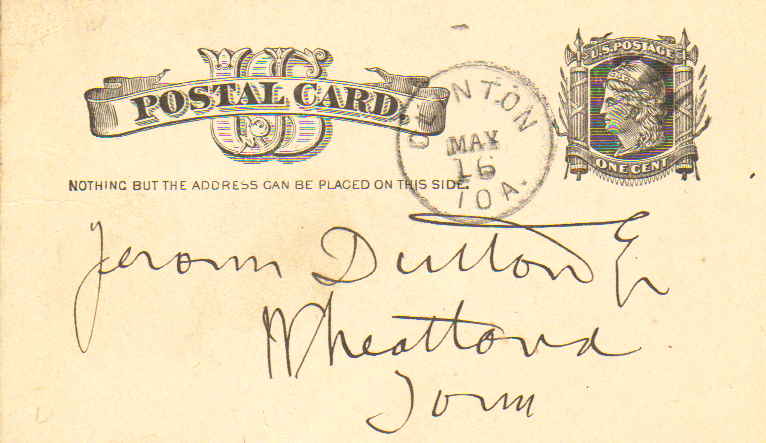 US
POSTAL CARD.
NOTHING BUT THE ADDRESS CAN BE PLACED ON THIS SIDE.
CLINTON
MAY
16
IOA.
U.S. POSTAGE
ONE CENT
Jerome Dutton Esq
Wheatland
Iowa